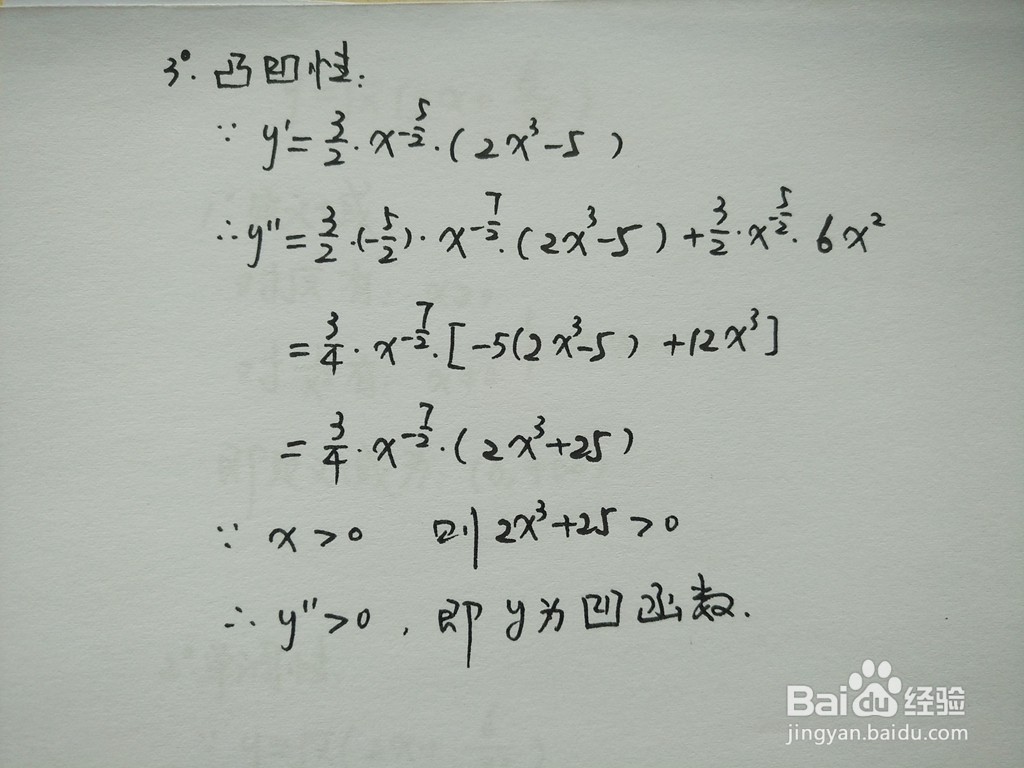 3°. 凸凹性:
∵ y'=3/2·x^(-5/2)·(2x³-5)
∴y''=3/2·(-5/2)·x^(-7/2)·(2x³-5)+3/2·x^(-5/2)·6x²
=3/4·x^(-7/2)·[-5(2x³-5)+12x³]
=3/4·x^(-7/2)·(2x³+25)
∵ x>0 则 2x³+25>0
∴ y''>0, 即y为凹函数.
Baidu经验
jingyan.baidu.com